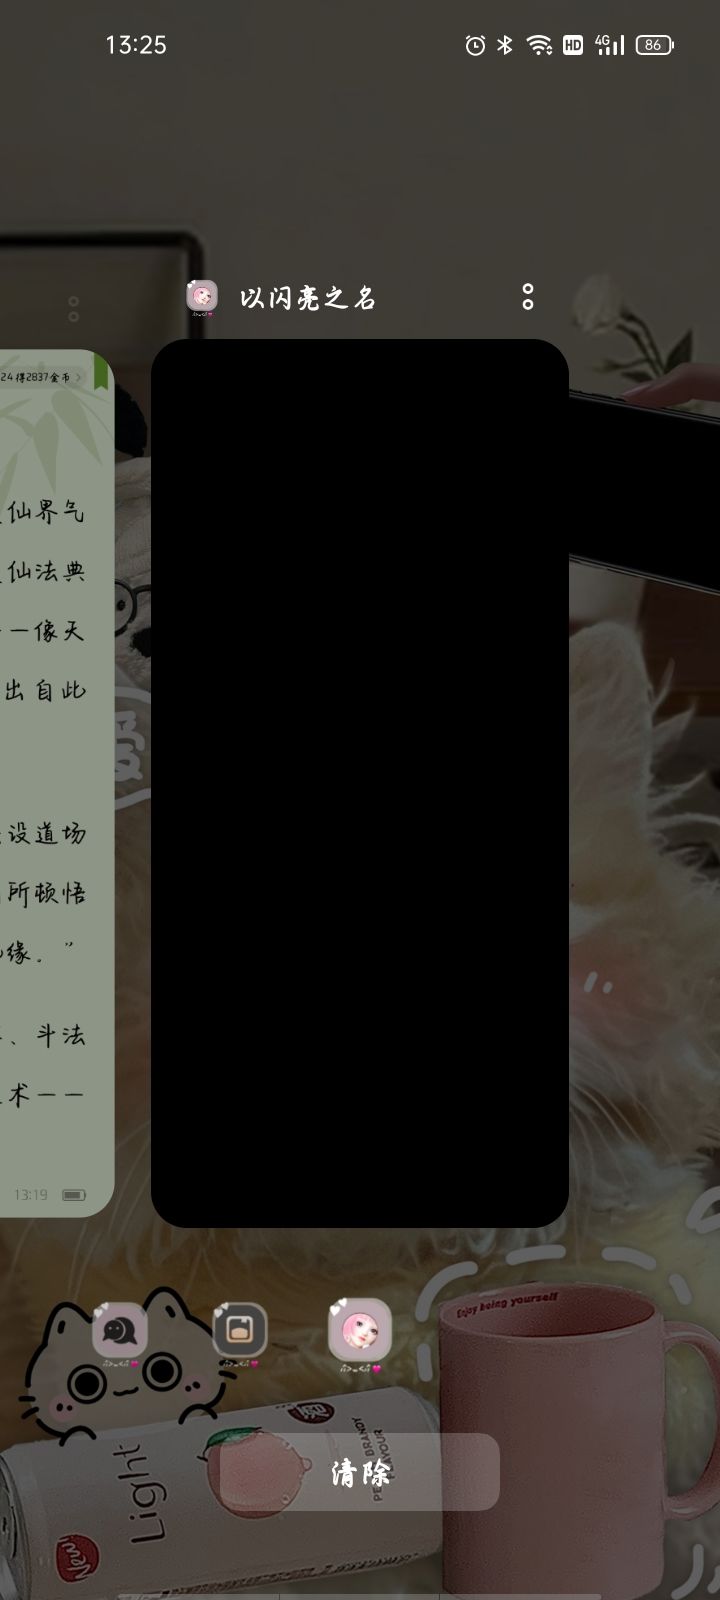 13:25
HD
4G
86
以闪亮之名
24得2837金币 >
仙界气
仙法典
一像天
出自此
爱
设道场
所顿悟
缘。”
、斗法
术一一
13:19
Enjoy being yourself
Light
清除